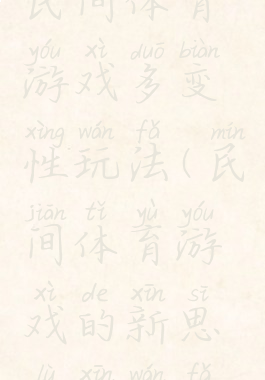 民间体育
yóu xì duō biàn
游戏多变
xìng wán fǎ mín
性玩法(民
jiān tǐ yù yóu
间体育游
xì de xīn sī
戏的新思
lù xīn wán fǎ